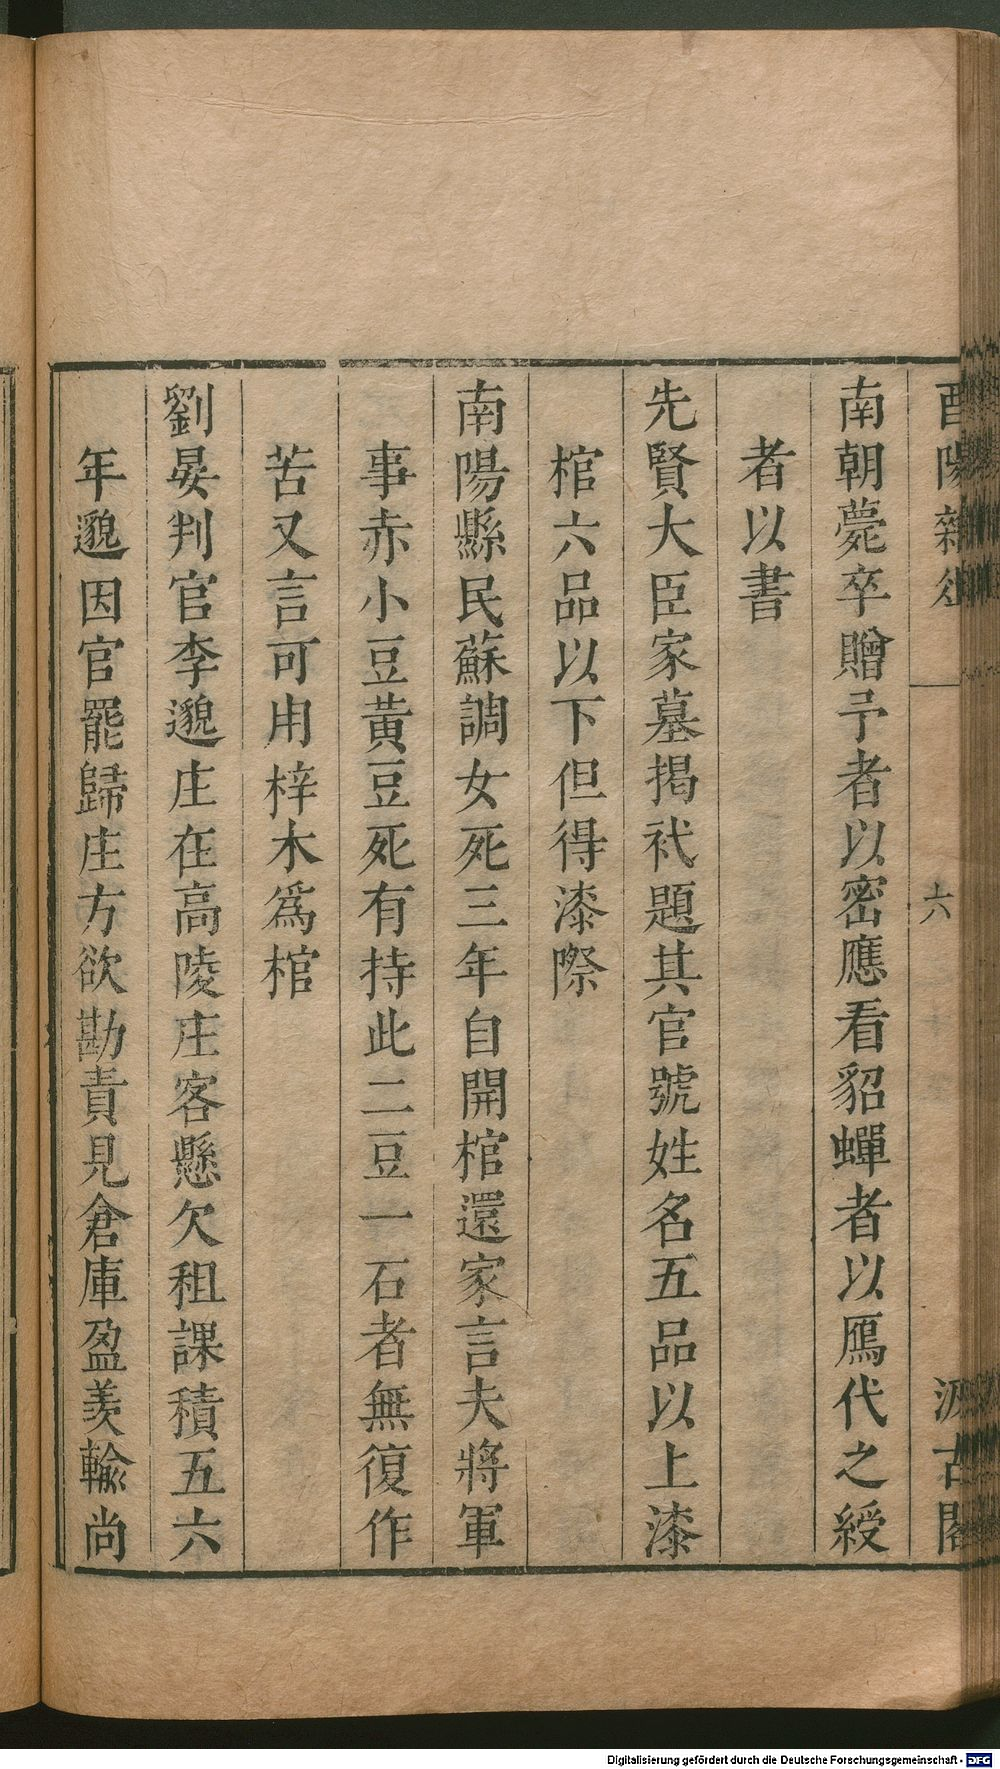 酉陽雜俎 六 汲古閣
南朝薨卒贈予者以密應看貂蟬者以鴈代之綬
者以書
先賢大臣家墓揭杙題其官號姓名五品以上漆
棺六品以下但得漆際
南陽縣民蘇調女死三年自開棺還家言夫將軍
事赤小豆黃豆死有持此二豆一石者無復作
苦又言可用梓木爲棺
劉晏判官李邈庄在高陵庄客懸欠租課積五六
年邈因官罷歸庄方欲勘責見倉庫盈羡輸尚
Digitalisierung gefördert durch die Deutsche Forschungsgemeinschaft - DFG